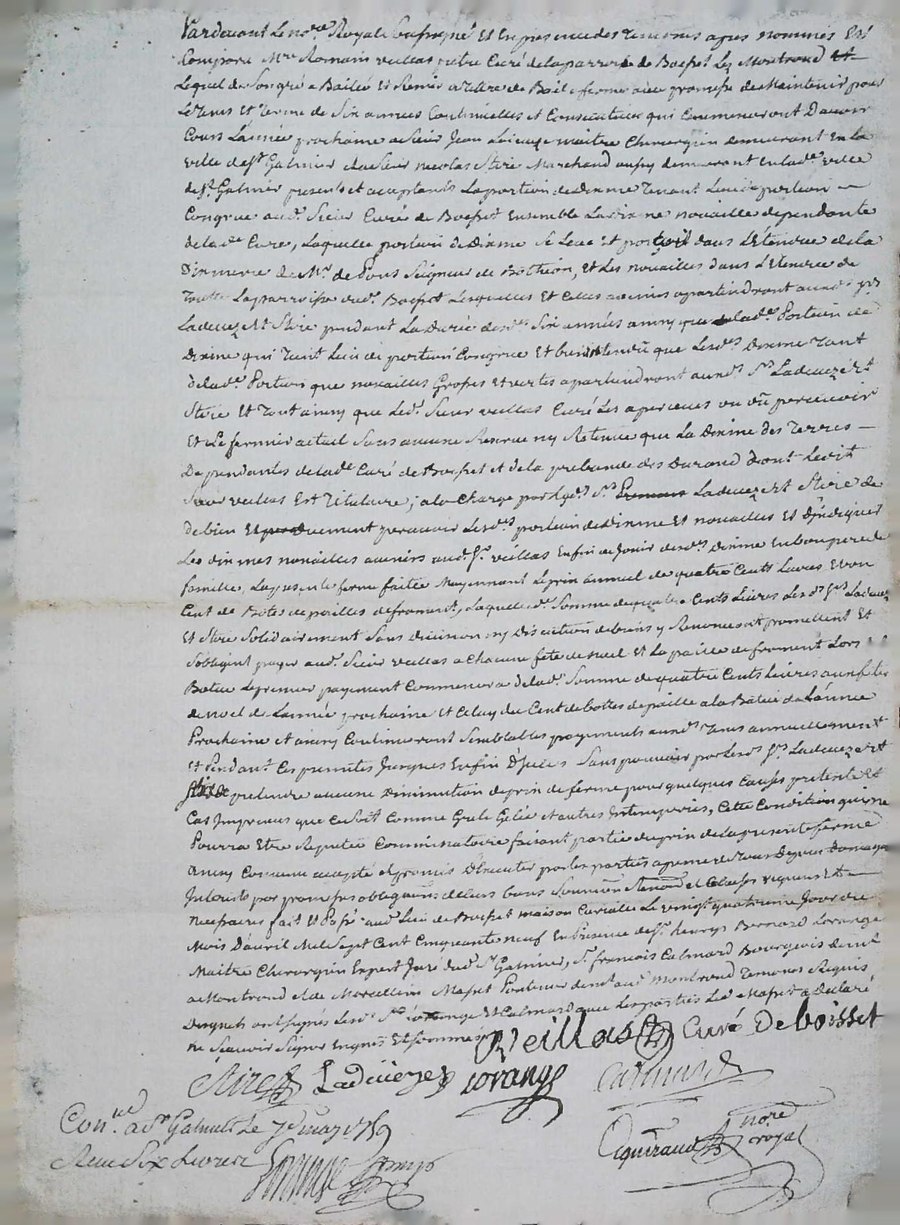 Pardevant Le no.re Royal soussigné Et En presence des Temoins apres nommés Est
Comparu M.re Romain veillas prêtre Curé de la parroisse de Boisset Les Montrond
Lequel de Son gré a Baillé Et Remis a Titre de Bail a ferme avec promesse de Maintenir pour
Le Tems Et Terme de Six années Continuelles et Consecutives qui Commenceront D'avoir
Cours L'année prochaine a Sieur Jean Ladeveze maitre Chirurgien demeurant En la
ville de S.t Galmier Et a Sieur nicolas Stire Marchand aussy demeurant En lad.e ville
de S.t Galmier presents et acceptants La portion de dixme Tenant Lieu de portion
Congrue aud.t Sieur Curé de Boisset Ensemble La dixme novaille dependante
de lad.e Cure, Laquelle portion de Dixme Se Leve Et perçoit dans L'Etendue de la
Dixmerie de M.r de Pons Seigneur de Bothéon, Et Les novailles dans L'Etendue de
Toutte La parroisse dud.t Boisset Lesquelles Et Celles a venir apartiendront auxd.s S.rs
Ladeveze Et Stire pendant La Durée desd.es Six années ainsy que lad.e Portion de
Dixme qui Tient Lieu de portion Congrue Et bien entendu que Lesd.es Dixme Tant
de lad.e Portion que novailles Grosses Et vertes apartiendront auxd.s S.rs Ladeveze Et
Stire Et Tout ainsy que Led.t Sieur veillas Curé Les a perceues ou dû percevoir
Et Le fermier actuel Sans aucune Reserve ny Retenue que La Dixme des Terres
Dependantes de lad.e Cure de Boisset et de la prebande des Durand dont Ledit
Sieur veillas Est Titulaire; a la Charge par Lesd.s S.rs Ladeveze Et Stire de
de bien Et duement percevoir Lesd.es portion de dixme Et novailles Et D'indiquer
Les dixmes novailles aud.t S.r veillas Enfin de Jouir desd.es Dixme En bon pere de
famille, La presente ferme faitte Moyennant Le prix annuel de quatre Cents Livres Et un
Cent de Bottes de pailles de froment, Laquelle d.e Somme de quatre Cents Livres Les d.s S.rs Ladeveze
Et Stire Solidairement Sans Division ny Discution de biens y Renonceant promettent Et
S'obligent payer aud.t Sieur veillas a Chacune fete de noel Et La paille de froment Lors
Batue Le premier payement Commencera de lad.e Somme de quatre Cents Livres aux fetes
de noel de L'année prochaine Et Celuy du Cent de bottes de paille a la Batue de L'année
Prochaine et ainsy Continueront Semblables payements auxd.s Tems annuellement
Et Pendant Ces presentes Jusques Enfin D'icelles Sans pouvoir par Lesd.s S.rs Ladeveze Et
Stire pretendre aucune Diminution de prix de ferme pour quelques Causes pretexte Et
Cas Impreveus que Ce Soit Comme Grele Gelée Et autres Intemperies, Cette Condition qui ne
Pourra Etre Reputée Comminatoire faisant partie du prix de La presente ferme
Ainsy Convenu accepté Et promis D'Executer par les parties a peine de Tous Depens Domages
Interets par promesses obligations de leurs biens Soumission Renon.on et Clauses requises Et
Necessaires fait Et Passé aud.t Lieu de Boisset maison Curialle Le vingt quatrieme Jour du
Mois D'avril Mil Sept Cent Cinquante neuf En presence de S.r henrys Bernard Lorange
Maitre Chirurgien Expert Juré dud.t S.t Galmier, S.r francois Calmard Bourgeois dem.t
a Montrond Et de Marcellin Masset demeurant aud.t Montrond Temoins Requis,
Desquels ont Signés Lesd.s S.rs Lorange Et Calmard avec Les parties Led.t Masset a Declaré
ne Sçavoir Signer Enquis Et Sommé
R Veillas Curé De boisset
Stire Ladeveze Lorange Calmard
Con.lé a S.t Galmier Le 7.e may 1759
Reçu Six Livres
nore royal